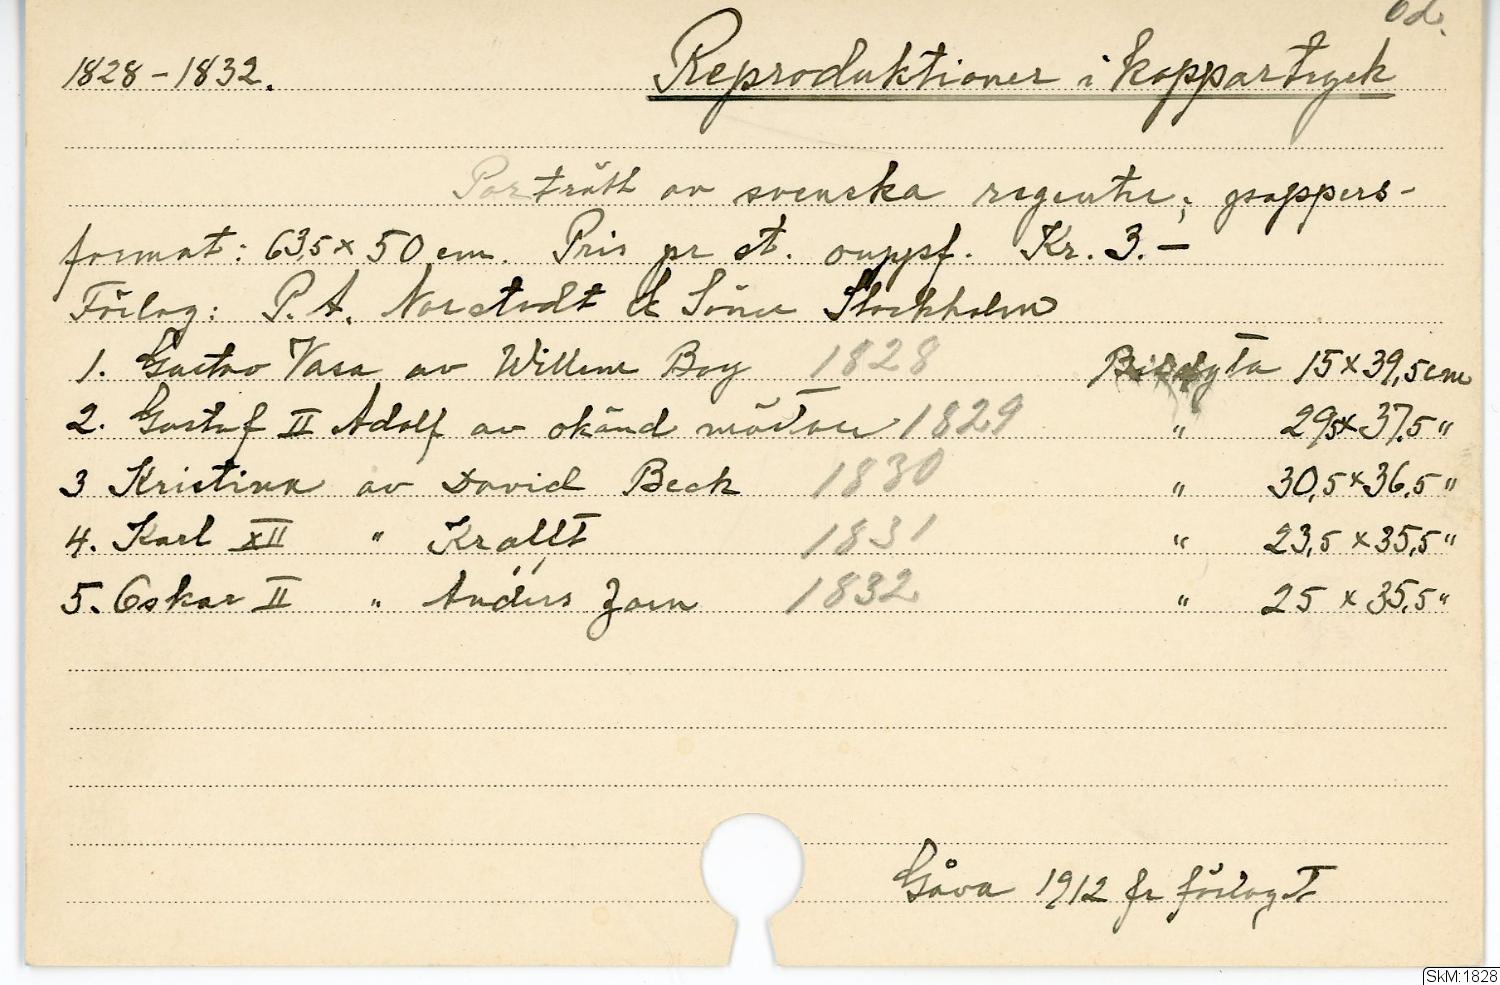 Od.
1828-1832. Reproduktioner i koppartryck
Porträtt av svenska regenter; pappers-
format: 63,5 x 50 cm. Pris pr st. ouppf. Kr. 3.—
Förlag: P. A. Norstedt & Söner Stockholm
1. Gustav Vasa av Willem Boy 1828 Bildyta 15 x 39,5 cm
2. Gustaf II Adolf av okänd mästare 1829 " 29,5 x 37,5 "
3 Kristina av David Beck 1830 " 30,5 x 36,5 "
4. Karl XII " Krafft 1831 " 23,5 x 35,5 "
5. Oskar II " Anders Zorn 1832 " 25 x 35,5 "
Gåva 1912 fr förlagt
SkM:1828